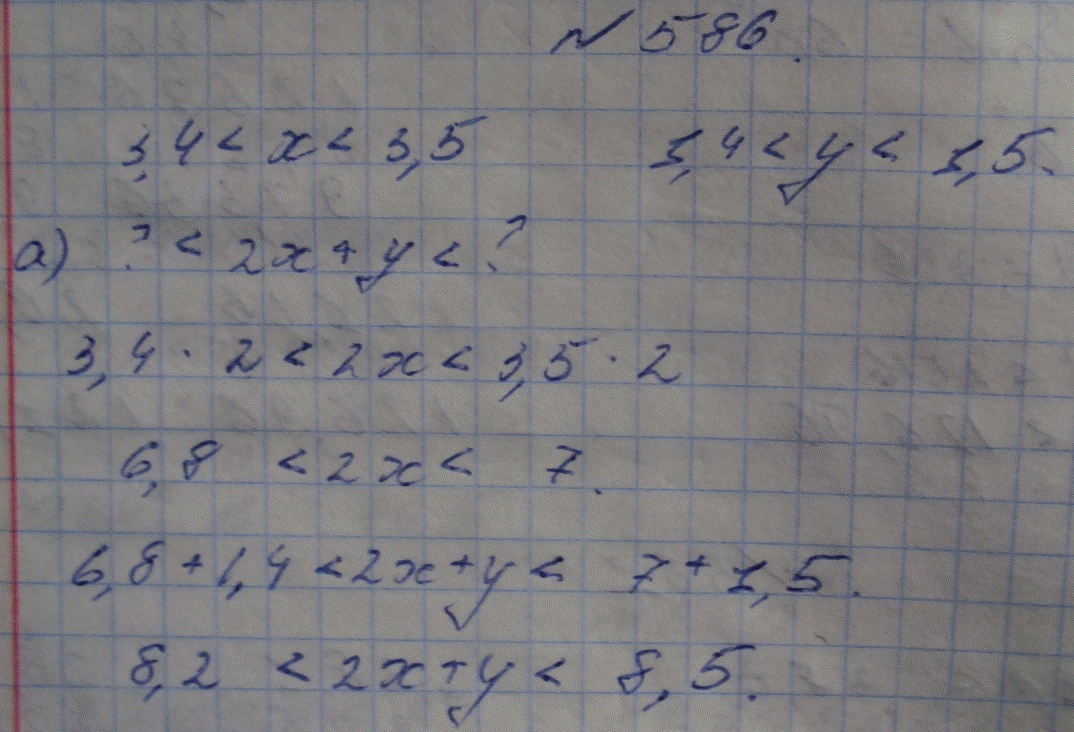 № 586.
3,4 < x < 3,5 1,4 < y < 1,5.
а) ? < 2x + y < ?
3,4 · 2 < 2x < 3,5 · 2
6,8 < 2x < 7.
6,8 + 1,4 < 2x + y < 7 + 1,5.
8,2 < 2x + y < 8,5.